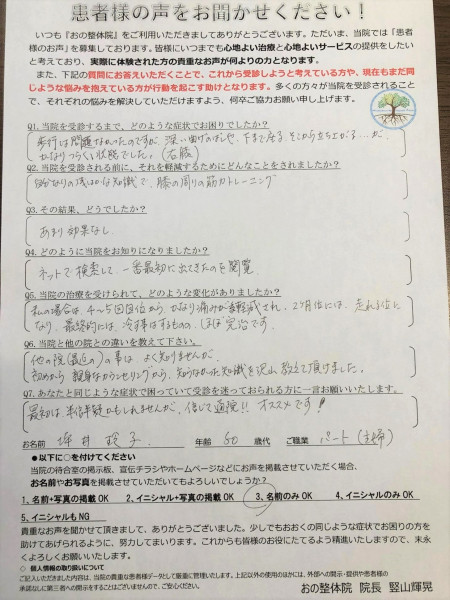 患者様の声をお聞かせください！
いつも『おの整体院』をご利用いただきましてありがとうございます。ただいま、当院では「患者
様のお声」を募集しております。皆様にいつまでも心地よい治療と心地よいサービスの提供をしたい
と考えており、実際に体験された方の貴重なお声が何よりの力となります。
また、下記の質問にお答えいただくことで、これから受診しようと考えている方や、現在もまだ同
じような悩みを抱えている方が行動を起こす助けとなります。多くの方々が当院を受診されること
で、それぞれの悩みを解決していただけますよう、何卒ご協力お願い申し上げます。
Q1. 当院を受診するまで、どのような症状でお困りでしたか？
歩行は問題なかったのですが、深い曲げのばしや、下まで座る、そこから立ち上がる…が、
かなりつらい状態でした。(右膝)
Q2. 当院を受診される前に、それを軽減するためにどんなことをされましたか？
自分なりの浅はかな知識で、膝の周りの筋力トレーニング
Q3. その結果、どうでしたか？
あまり効果なし
Q4. どのように当院をお知りになりましたか？
ネットで検索して、一番最初に出てきたのを閲覧
Q5. 当院の治療を受けられて、どのような変化がありましたか？
私の場合は4〜5回目位から、かなり痛みが軽減され、2ヶ月位には、走れる位に
なり、最終的には、冷す事はするものの、ほぼ完治です。
Q6. 当院と他の院との違いを教えて下さい。
他の院(最近の)の事は よく知りませんが、
初めから 親身なカウンセリングから、知らなかった知識を沢山教えて頂けました。
Q7. あなたと同じような症状で困っていて受診を迷っておられる方に一言お願いいたします。
最初は半信半疑かもしれませんが、信じて通院!! オススメです!!
お名前 坪井 玲子 年齢 50 歳代 ご職業 パート(主婦)
●以下に○を付けてください
当院の待合室の掲示板、宣伝チラシやホームページなどにお声を掲載させていただく場合、
お名前やお写真を掲載させていただいてもよろしいでしょうか？
1、名前+写真の掲載 OK 2、イニシャル+写真の掲載 OK 3、名前のみ OK 4、イニシャルのみ OK
5、イニシャルも NG
貴重なお声を聞かせて頂きまして、ありがとうございました。少しでもおおくの同じような症状でお困りの方を
助けてあげられるように、努力してまいります。これからも皆様のお役にたてるよう精進いたしますので、末永
くよろしくお願いいたします。
◇ 個人情報の取り扱いについて
ご記入いただきました内容は、当院の貴重な患者様データとして厳重に管理いたします。上記以外の使用のほかには、外部への開示・提供や患者様の
承諾なしに第三者への開示をすることはございませんので、ご安心ください。
おの整体院 院長 竪山輝晃